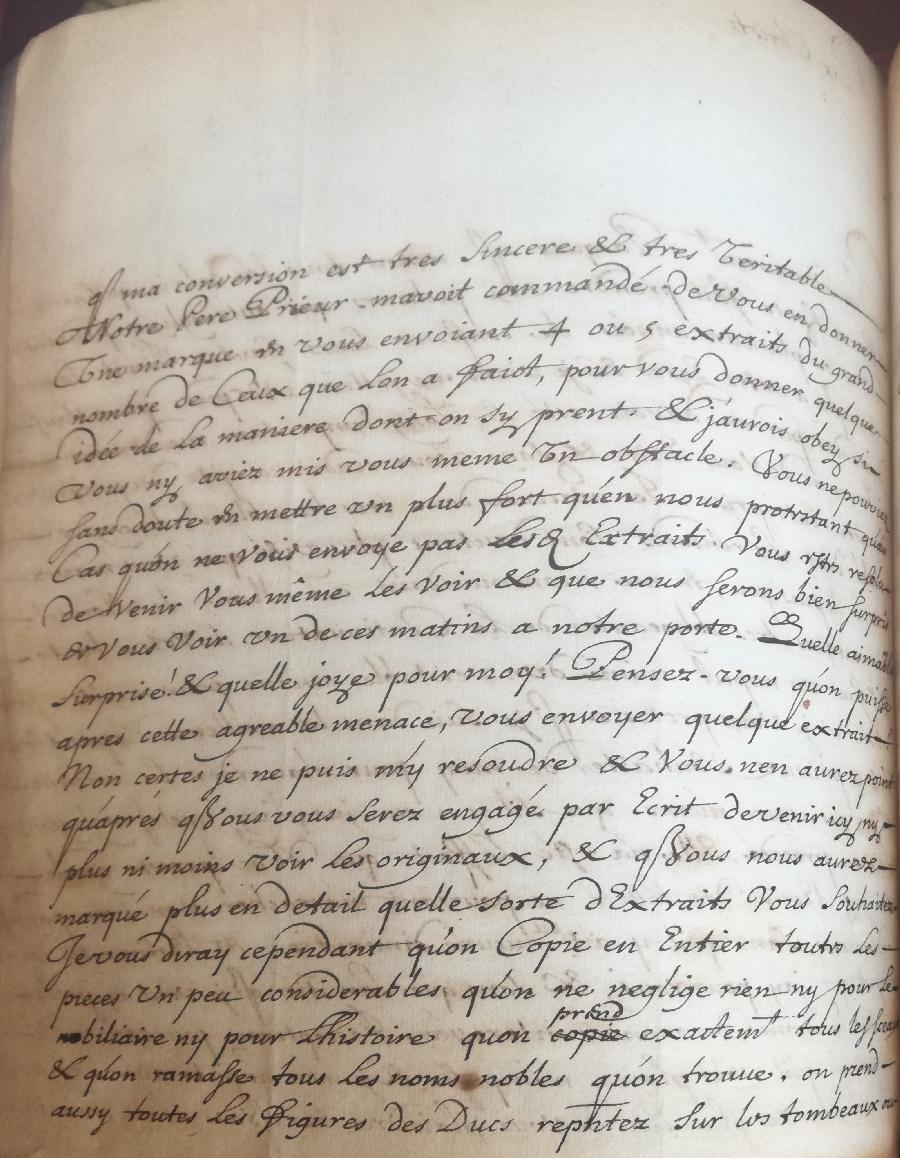 qʃ ma conversion est tres sincere & tres veritable
Notre Pere Prieur mavoit commandé de vous en donner
Une marque en vous envoiant 4 ou 5 extraits du grand
nombre de Ceux que lon a faict, pour vous donner quelque
idée de la maniere dont on sy prent & j'aurois obey si
vous ny aviez mis vous meme un obstacle. Vous ne pouviez
sans doute en mettre un plus fort qu'en nous protestant quau
Cas qu'on ne vous envoye pas les Extraits Vous estes resolu
de venir Vous même les voir & que nous serons bien surpris
de vous Voir un de ces matins a notre porte. Quelle aimable
surprise! & quelle joye pour moy! Pensez-vous qu'on puisse
apres cette agreable menace, vous envoyer quelque extrait
Non certes je ne puis m'y resoudre & Vous nen aurez point
qu'aprés qʃ Vous vous serez engagé par Ecrit de venir icy ny
plus ni moins voir les originaux, & qʃ Vous nous aurez
marqué plus en detail quelle sorte d'Extraits Vous souhaitez
Je vous diray cependant qu'on Copie en Entier toutes les
pieces un peu considerables qu'on ne neglige rien ny pour le
nobiliaire ny pour Lhistoire quon prend exactemt tous les sceaux
& qu'on ramasse tous les noms nobles qu'on trouve. on prend
aussy toutes les figures des Ducs rep̄ntez sur les tombeaux ou